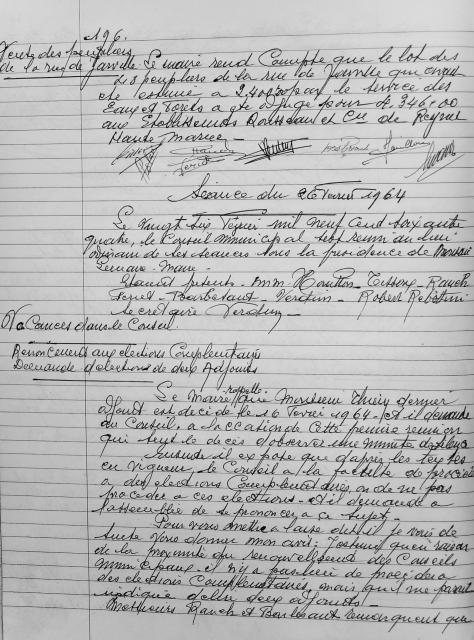 196.
Vente des peupliers
de la rue de Jarville Le maire rend Compte que le lot des
23 peupliers de la rue de Jarville qui avait
été estimé a par le service des
Eaux et Forêts a été adjugé pour
aux Etablissements Rousseau et Cie de
Haute Marne -
Séance du 26 Février 1964
Le Vingt Six Février mil neuf cent soixante
quatre, le Conseil municipal s'est réuni au lieu
ordinaire de ses séances sous la présidence de Monsieur
Maire -
Etaient présents - M.M. Mouton - Tissory - Rauch
- Barbesant - Verdun - Robert
Secrétaire Verdun -
Vacances dans le Conseil
Renoncement aux élections Complémentaires
Demande d'élections de deux Adjoints
Le Maire rappelle que Monsieur Thiéry dernier
adjoint est décédé le 16 Février 1964 - et il demande
au Conseil, a l'occation de cette première réunion
qui suit le décès d'observer une minute de silence
Ensuite il expose que d'après les textes
en vigueur, le Conseil a la faculté de procéder
a des élections Complémentaires, ou de ne pas
procéder a ces élections - et il demande a
l'assemblée de se prononcer a ce sujet -
Pour vous mettre a l'aise dit-il je vais de
suite vous donner mon avis: J'estime qu'en raison
de la proximité du renouvellement des Conseils
municipaux - il n'y a pas lieu de procéder a
des élections Complémentaires, mais qu'il me parait
d'élire deux adjoints -
Messieurs Rauch et Barbesant remarquent que